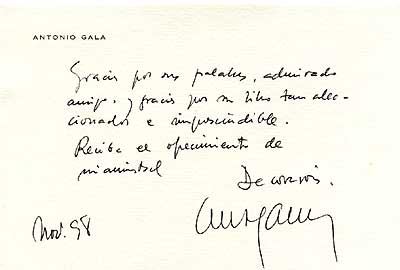 ANTONIO GALA
Gracias por sus palabras, admirado
amigo. Y gracias por su libro tan alec-
cionador e imprescindible.
Reciba el ofrecimiento de
mi amistad
De corazón.
Nov. 98